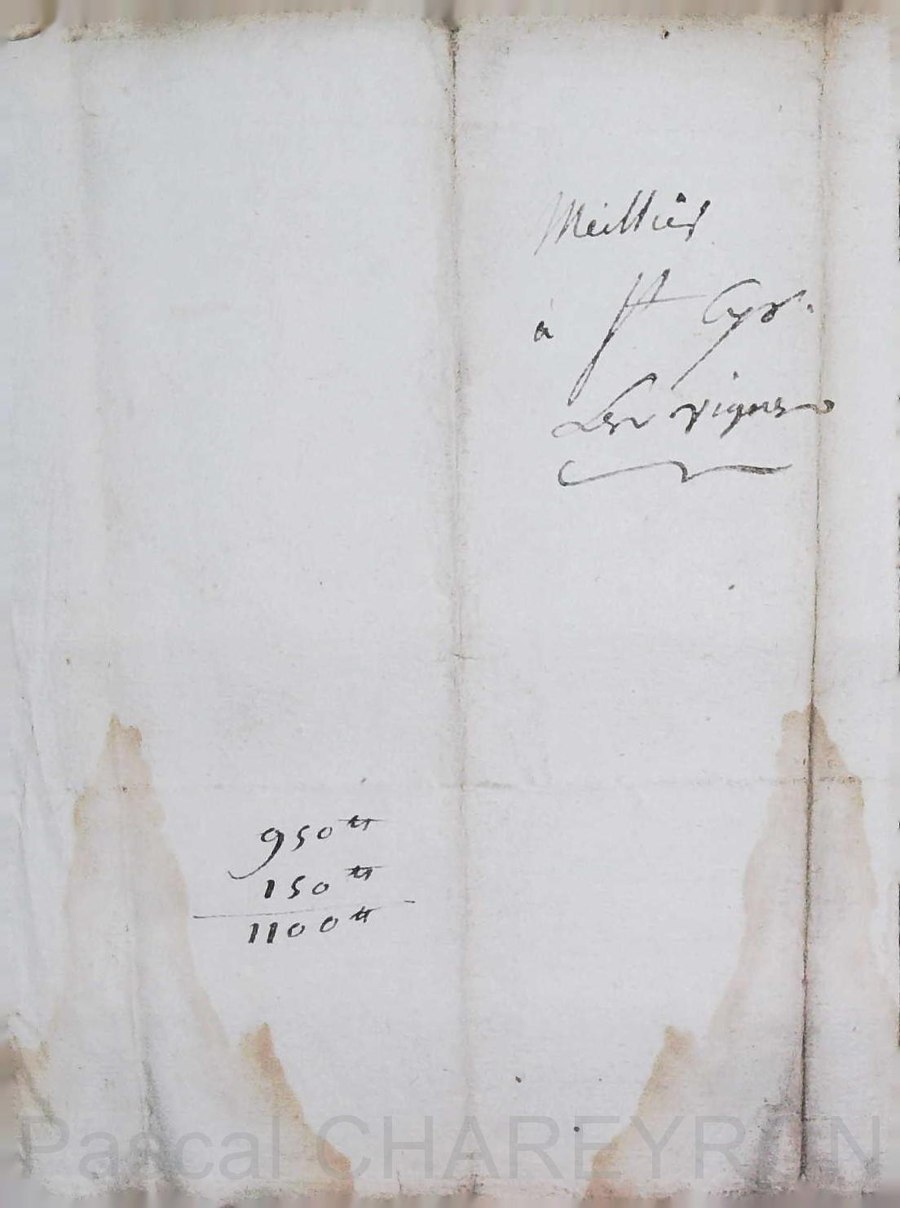 Meillier
à St Cyr
Les vignes
950 ₶
150 ₶
1100 ₶
Pascal CHAREYRON